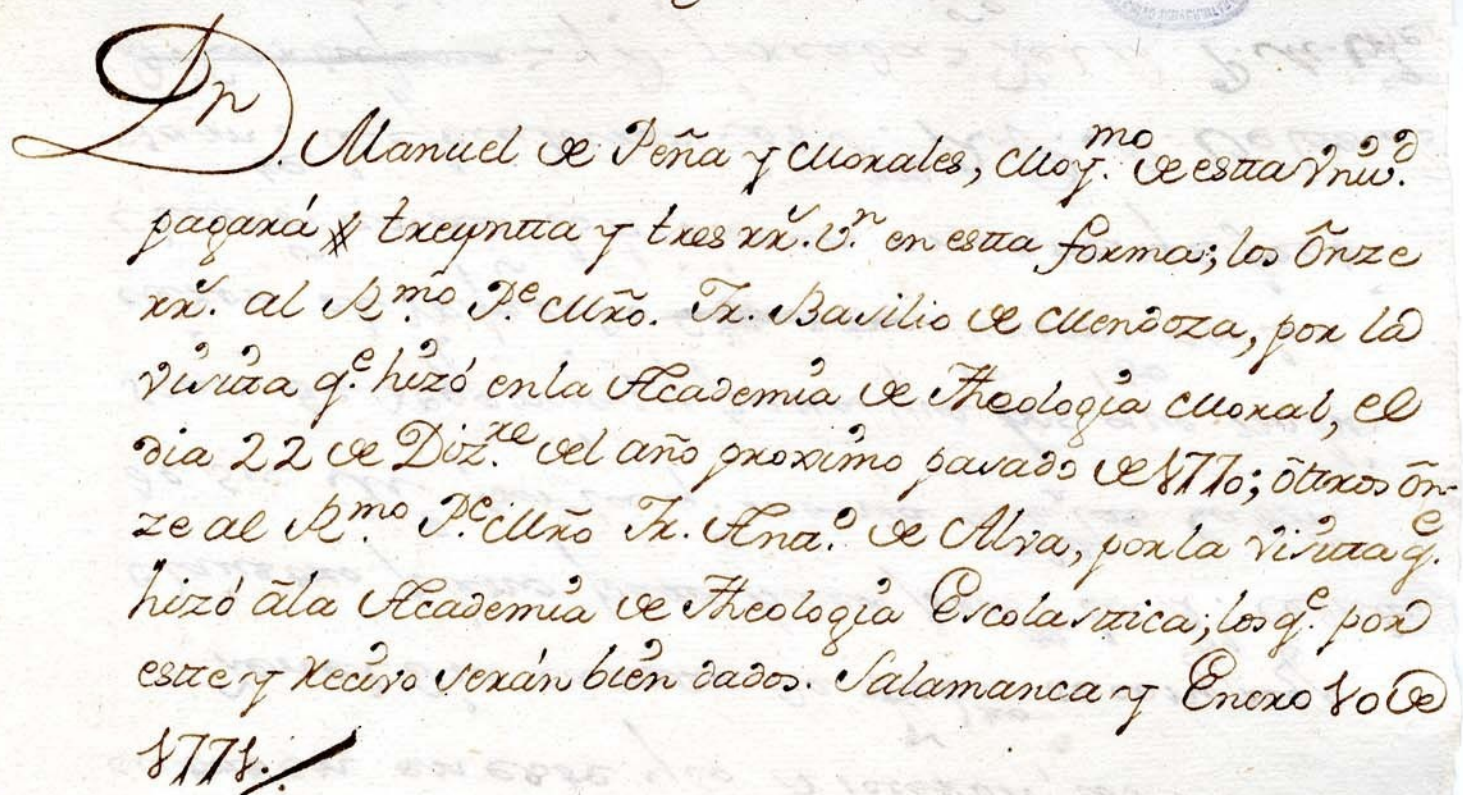 Dn. Manuel de Peña y Morales, Moy.mo de estta Vniv.d
pagará treyntta y tres rr.s v.n en estta forma; los Onze
rr.s al R.mo P.e Mrõ. Fr. Basilio de Mendoza, por la
visitta q.e hizó en la Academia de Theología Moral, el
dia 22 de Diz.re del año proximo pasado de 1770; ottros On-
ze al R.mo P.e Mrõ Fr. Antt.o de Alva, por la visitta q.e
hizó ála Academia de Theología Escolasttica; los q.e por
estte y recivo serán bien dados. Salamanca y Enero 10 de
1771.